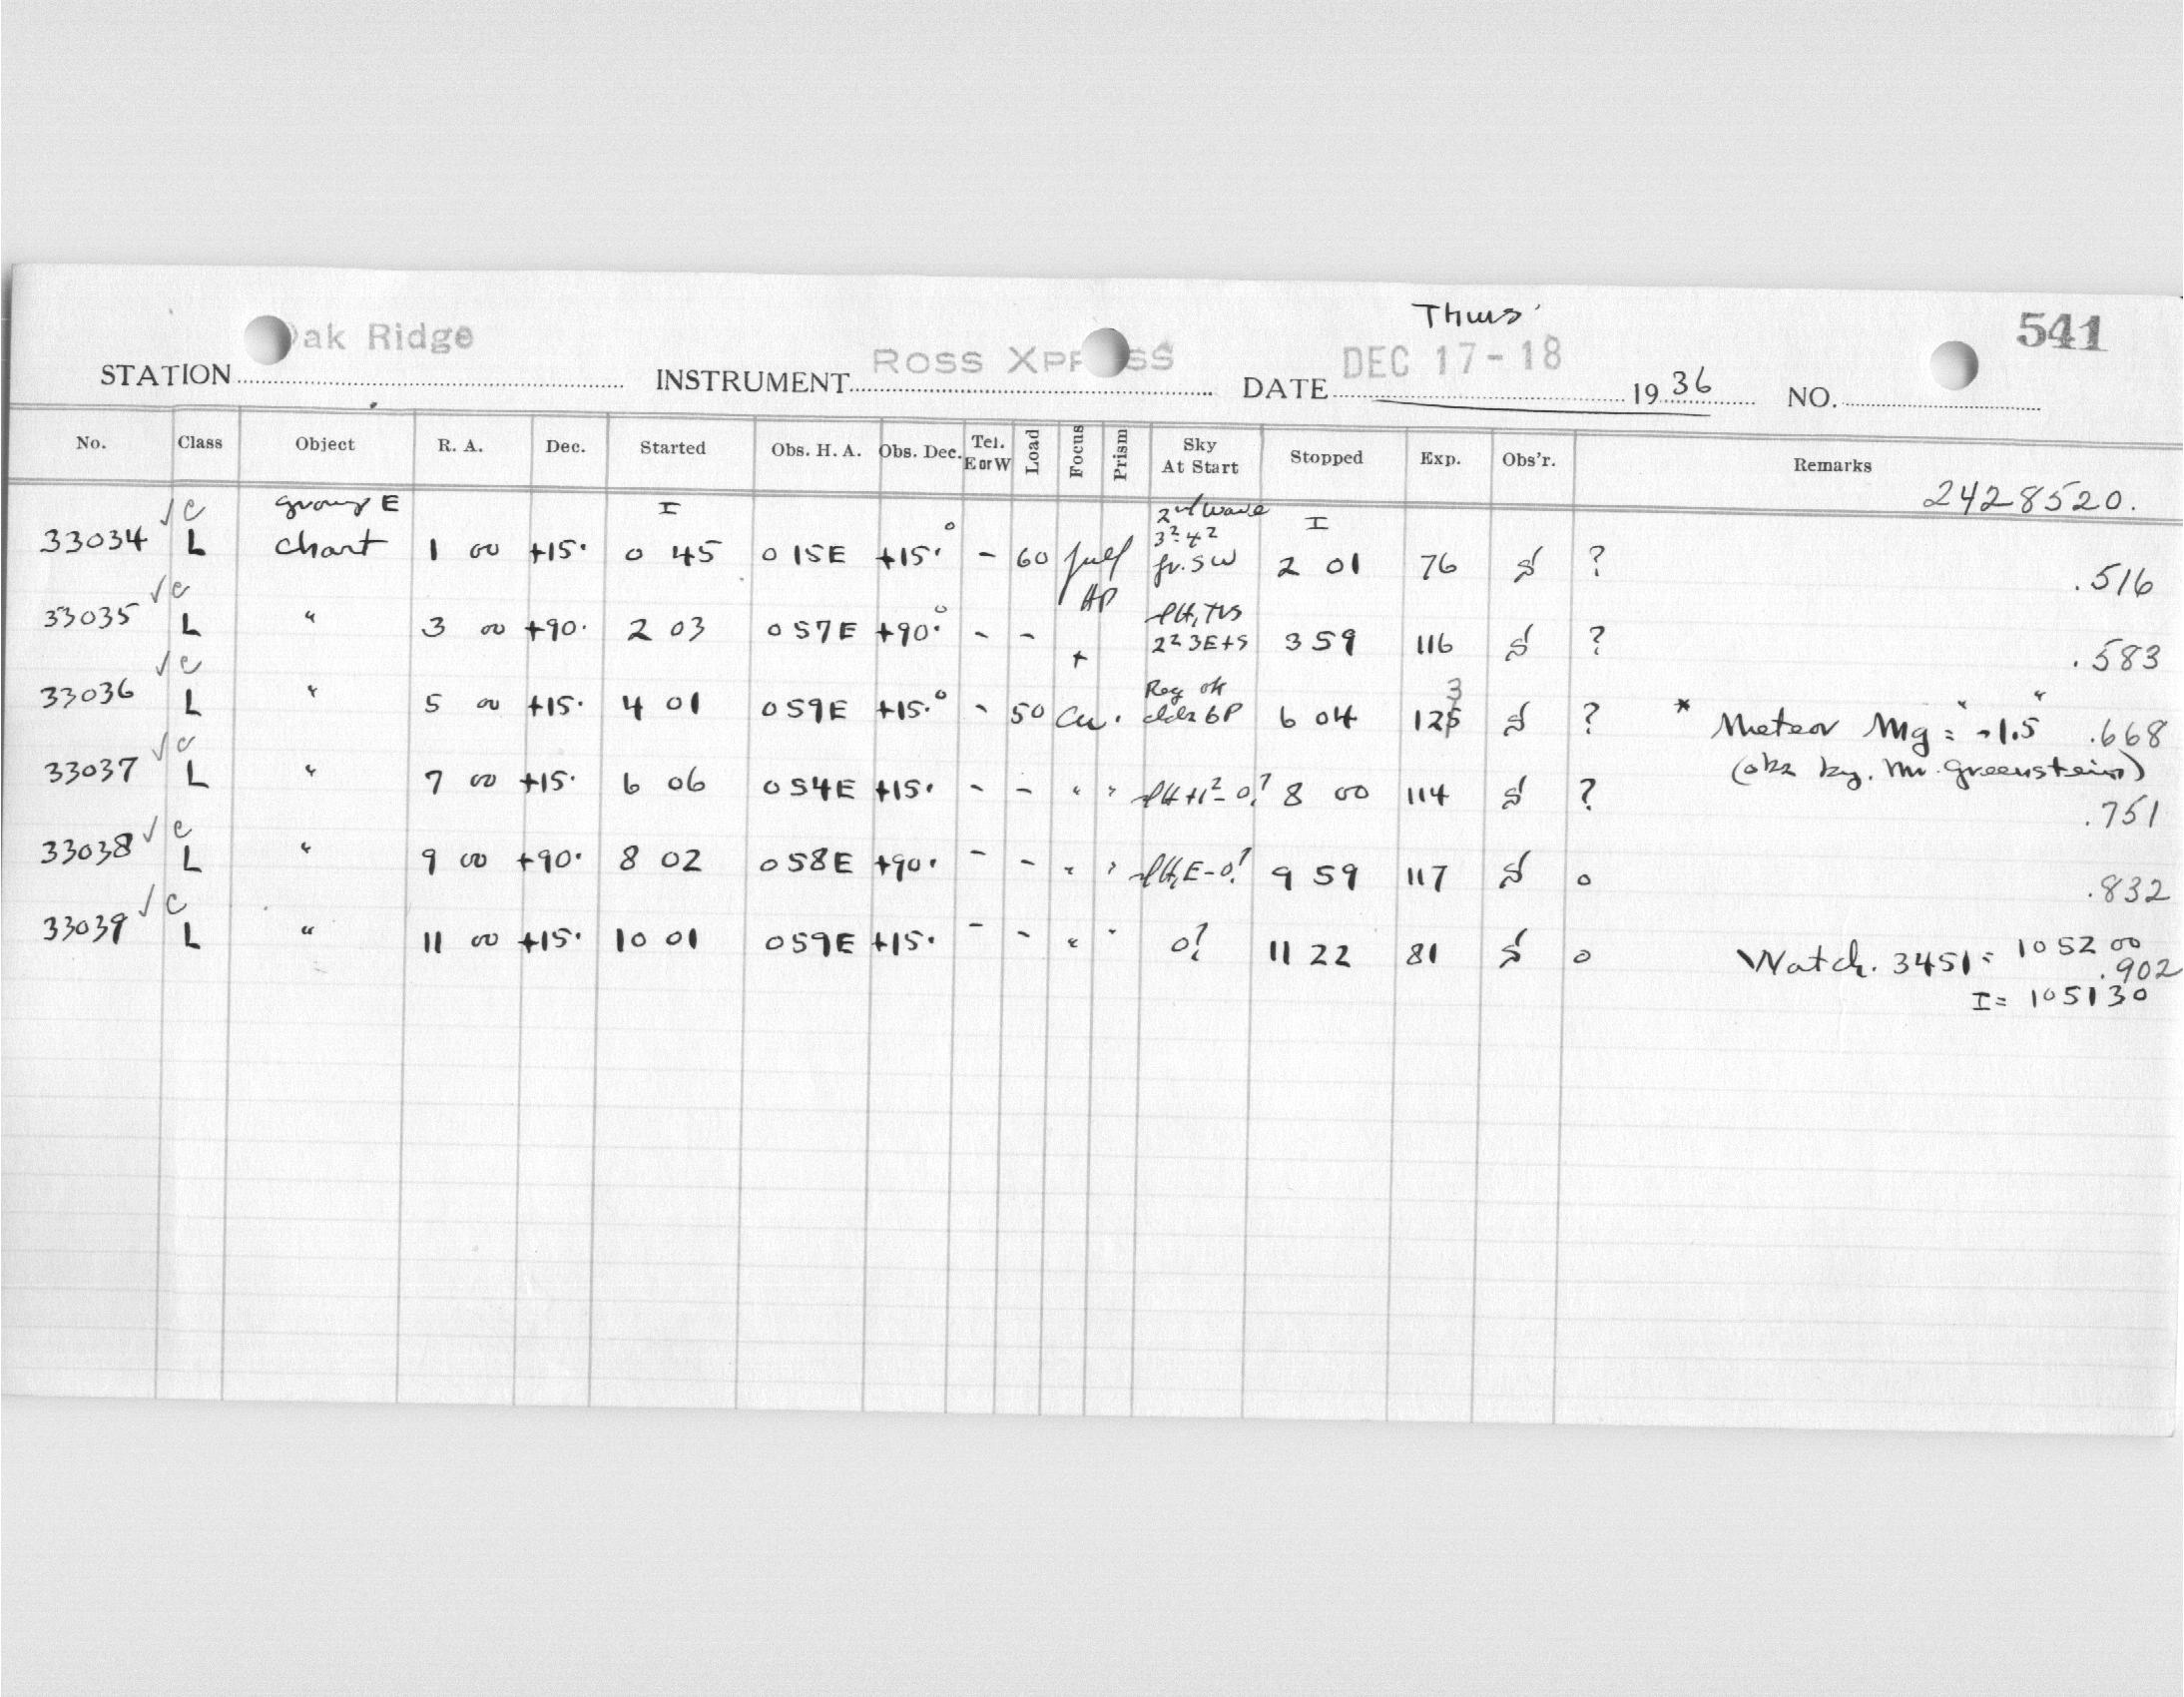 Thurs
541
STATION Oak Ridge INSTRUMENT ROSS XPRESS DATE DEC 17-18 1936 NO.
No. Class Object R. A. Dec. Started Obs. H. A. Obs. Dec. Tel. E or W Load Focus Prism Sky At Start Stopped Exp. Obs'r. Remarks
√c group E I 2nd wave I 2428520.
33034 L chart 1 00 +15° 0 45 0 15E +15° - 60 full 3²-4² fr. SW 2 01 76 ? .516
√c HP
33035 L " 3 00 +90° 2 03 0 57E +90° - - 2² 3E+S 3 59 116 ? .583
√c + Reg ok 3
33036 L " 5 00 +15° 4 01 0 59E +15° - 50 Cu. clds 6P 6 04 125 ? * Meteor Mg = "-1.5" .668
√c (obs by. Mr. Greenstein)
33037 L " 7 00 +15° 6 06 0 54E +15° - - " " +1²-0? 8 00 114 ? .751
√c
33038 L " 9 00 +90° 8 02 0 58E +90° - - " " E-0? 9 59 117 0 .832
√c
33039 L " 11 00 +15° 10 01 0 59E +15° - - " " 0? 11 22 81 0 Watch. 3451 = 10 52 00
.902
I = 10 51 30